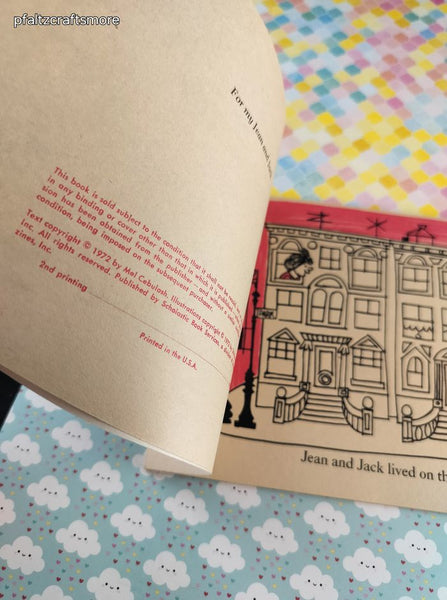 pfaltzcraftsmore
For my Jean and
This book is sold subject to the condition that it shall not be resold,
in any binding or cover other than that in which it is published
sion has been obtained from the publisher—and without a
condition, being imposed on the subsequent purchaser.
Text copyright © 1972 by Mel Cebulash. Illustrations copyright ©
Inc. All rights reserved. Published by Scholastic Book Services, a
zines, In
2nd printing
Printed in the U.S.A.
Jean and Jack lived on th